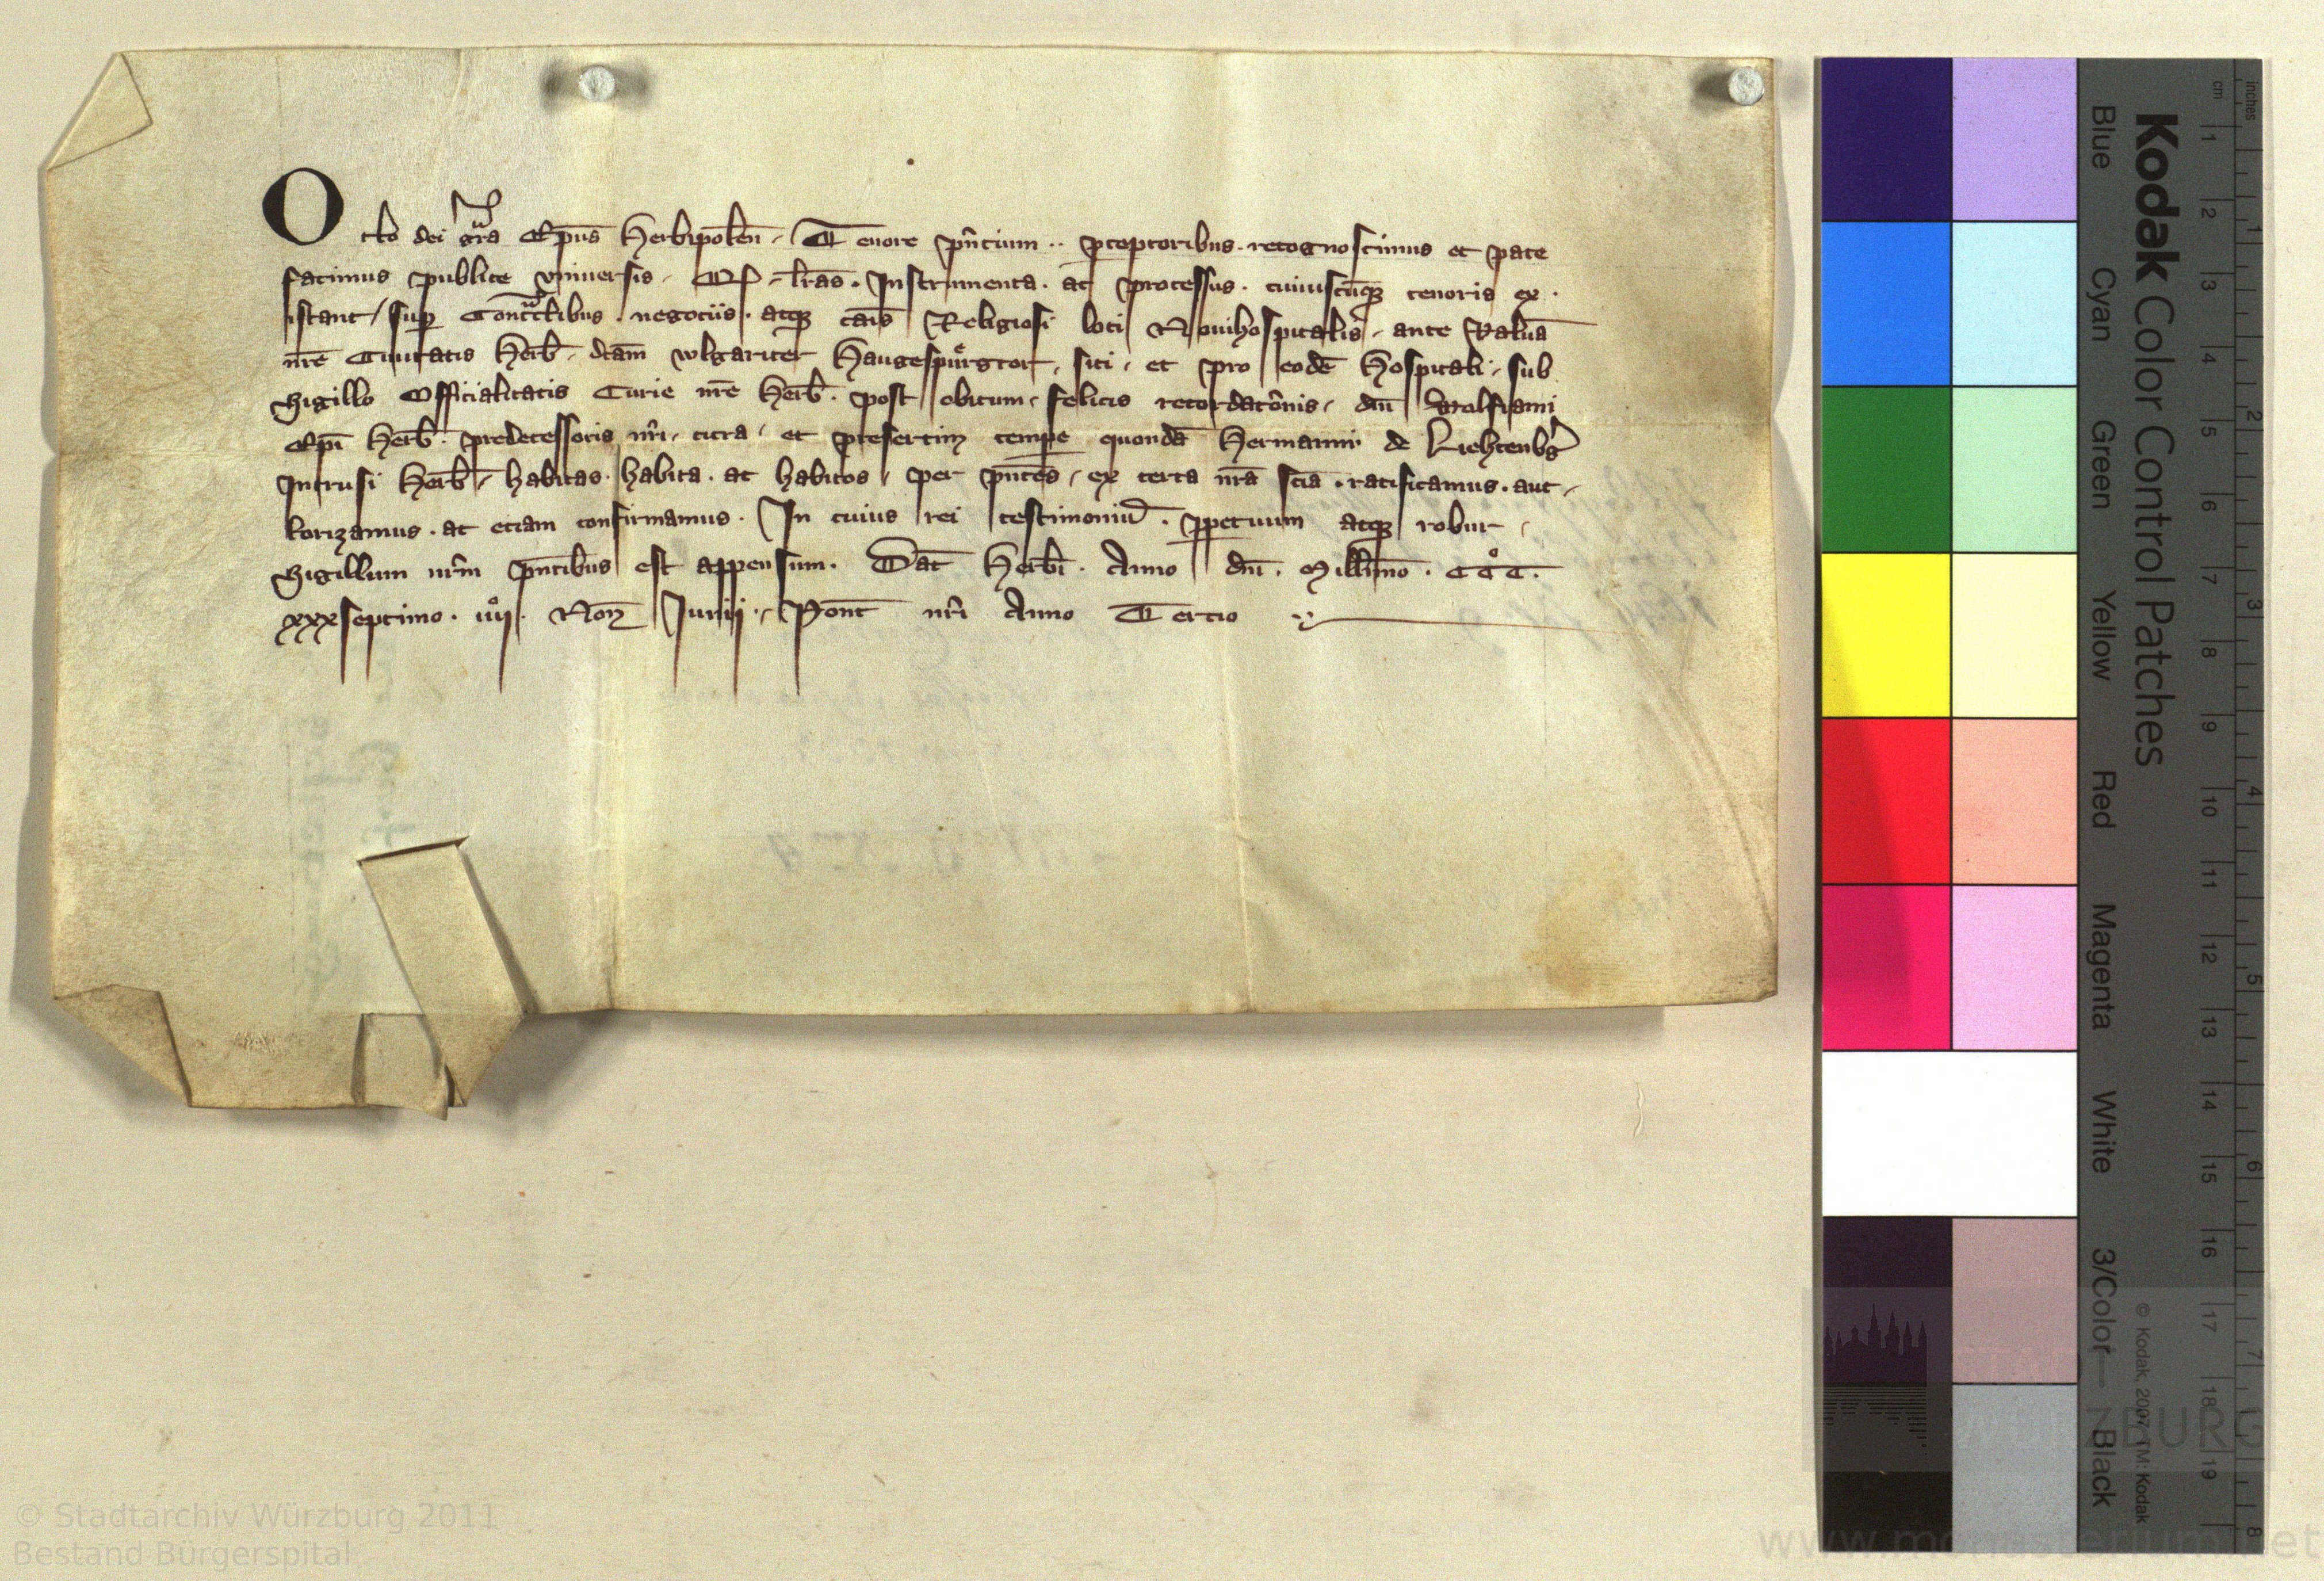 Otto dei gr̄a Ep̄us Herbipoleñ. Tenore p̄ntium .. recognoscimus et pate
facimus publice vniuersis. l̄ras. Instrumenta. ac processus. cuiuscūq̨ tenoris ex.
istant, sup negociis. atq̨ cāis Religiosi loci Nouihospitalis. ante Valuā
n̄re Ciuitatis Herb̄. dc̄am wlgariter Haugespu̍rgtor, siti, et pro eodē Hospitali, sub
Sigillo Officialitatis Curie n̄re Herb̄. post obitum, felicis recordac̄onis, dn̄i Wolframi
Ep̄i Herb̄. predecessoris nr̄i, citra, et presertim tempe quondā Hermanni de Liehtenb̄g
Intrusi Herb̄, habitas. habita. ac habitos, per p̄ntes, ex certa nr̄a sc̄ia. ratificamus. auc,
torizamus. ac etiam confirmamus. In cuius rei testimoniū. ppetuum atq̨ robur,
Sigillum nr̄m p̄ntibus est appensum. Dat̄ Herb̄i. Anno dn̄i. Mill̄imo. CC̊C.
xxxseptimo. iiij̊. Non̄ Junij, Pont̄ nr̄i Anno Tertio
Kodak Color Control Patches
Blue Cyan Green Yellow Red Magenta White 3/Color Black
© Kodak, 2007 TM: Kodak
cm 1 2 3 4 5 6 7 8 9 10 11 12 13 14 15 16 17 18 19
inches 1 2 3 4 5 6 7 8
WÜRZBURG
© Stadtarchiv Würzburg 2011
Bestand Bürgerspital
www.monasterium.net